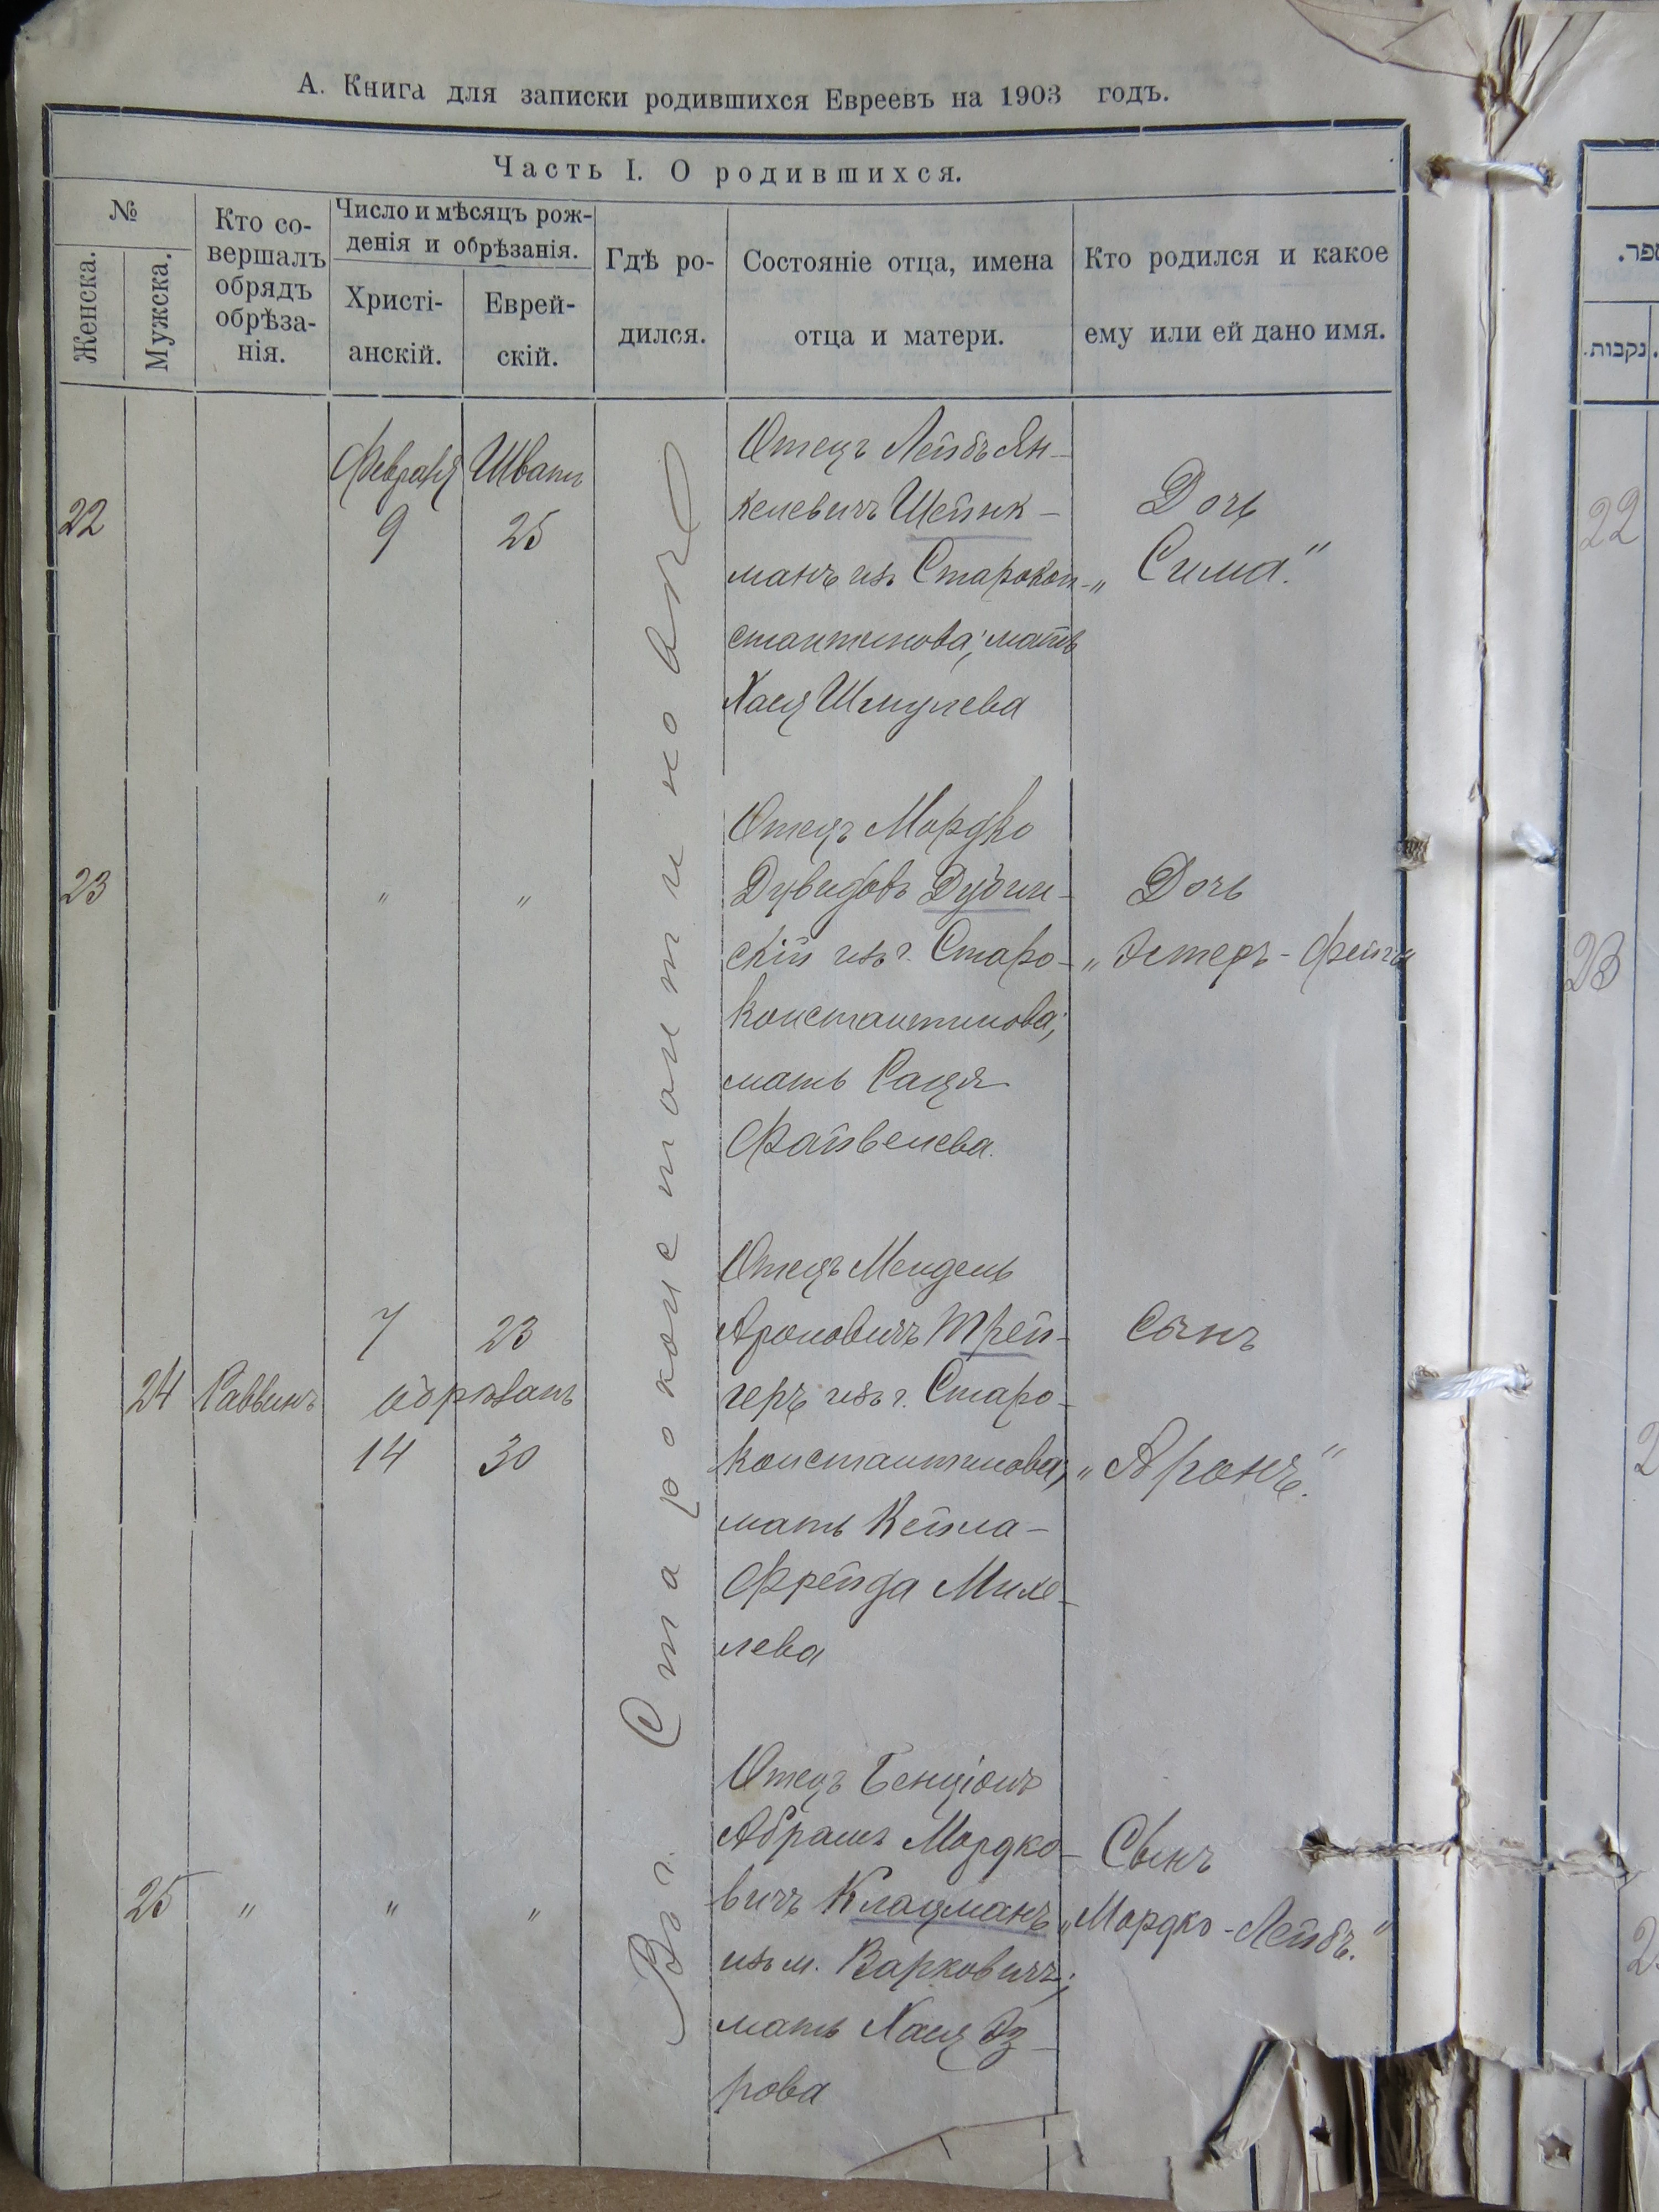 А. Книга для записки родившихся Евреевъ на 1903 годъ.
Часть I. О родившихся.
№
Женска.
Мужска.
Кто со-
вершалъ
обрядъ
обрѣза-
нія.
Число и мѣсяцъ рож-
денія и обрѣзанія.
Христі-
анскій.
Еврей-
скій.
Гдѣ ро-
дился.
Состояніе отца, имена
отца и матери.
Кто родился и какое
ему или ей дано имя.
Въ г. Староконстантиновѣ
22
Февраля
9
Шватъ
25
Отецъ Лейбъ Ян-
келевичъ Шейнк-
манъ изъ Старокон-
стантинова; мать
Хася Шмулева
Дочь
„Сима."
23
"
"
Отецъ Мордко
Дувидовъ Дубин-
скій изъ г. Старо-
константинова;
мать Сація
Файвелева.
Дочь
„Эстеръ-Фейга
24
Раввинъ
7
23
обрѣзанъ
14
30
Отецъ Мендель
Ароновичъ Трей-
геръ изъ г. Старо-
константинова;
мать Кейла-
Фрейда Михе-
лева
Сынъ
„Аронъ."
25
"
"
"
Отецъ Бенціонъ
Абрамъ Мордко-
вичъ Клацманъ
изъ м. Варковичъ;
мать Хася Эз-
рова
Сынъ
„Мордко-Лейбъ."
ספר.
נקבות.
22
23
2
2